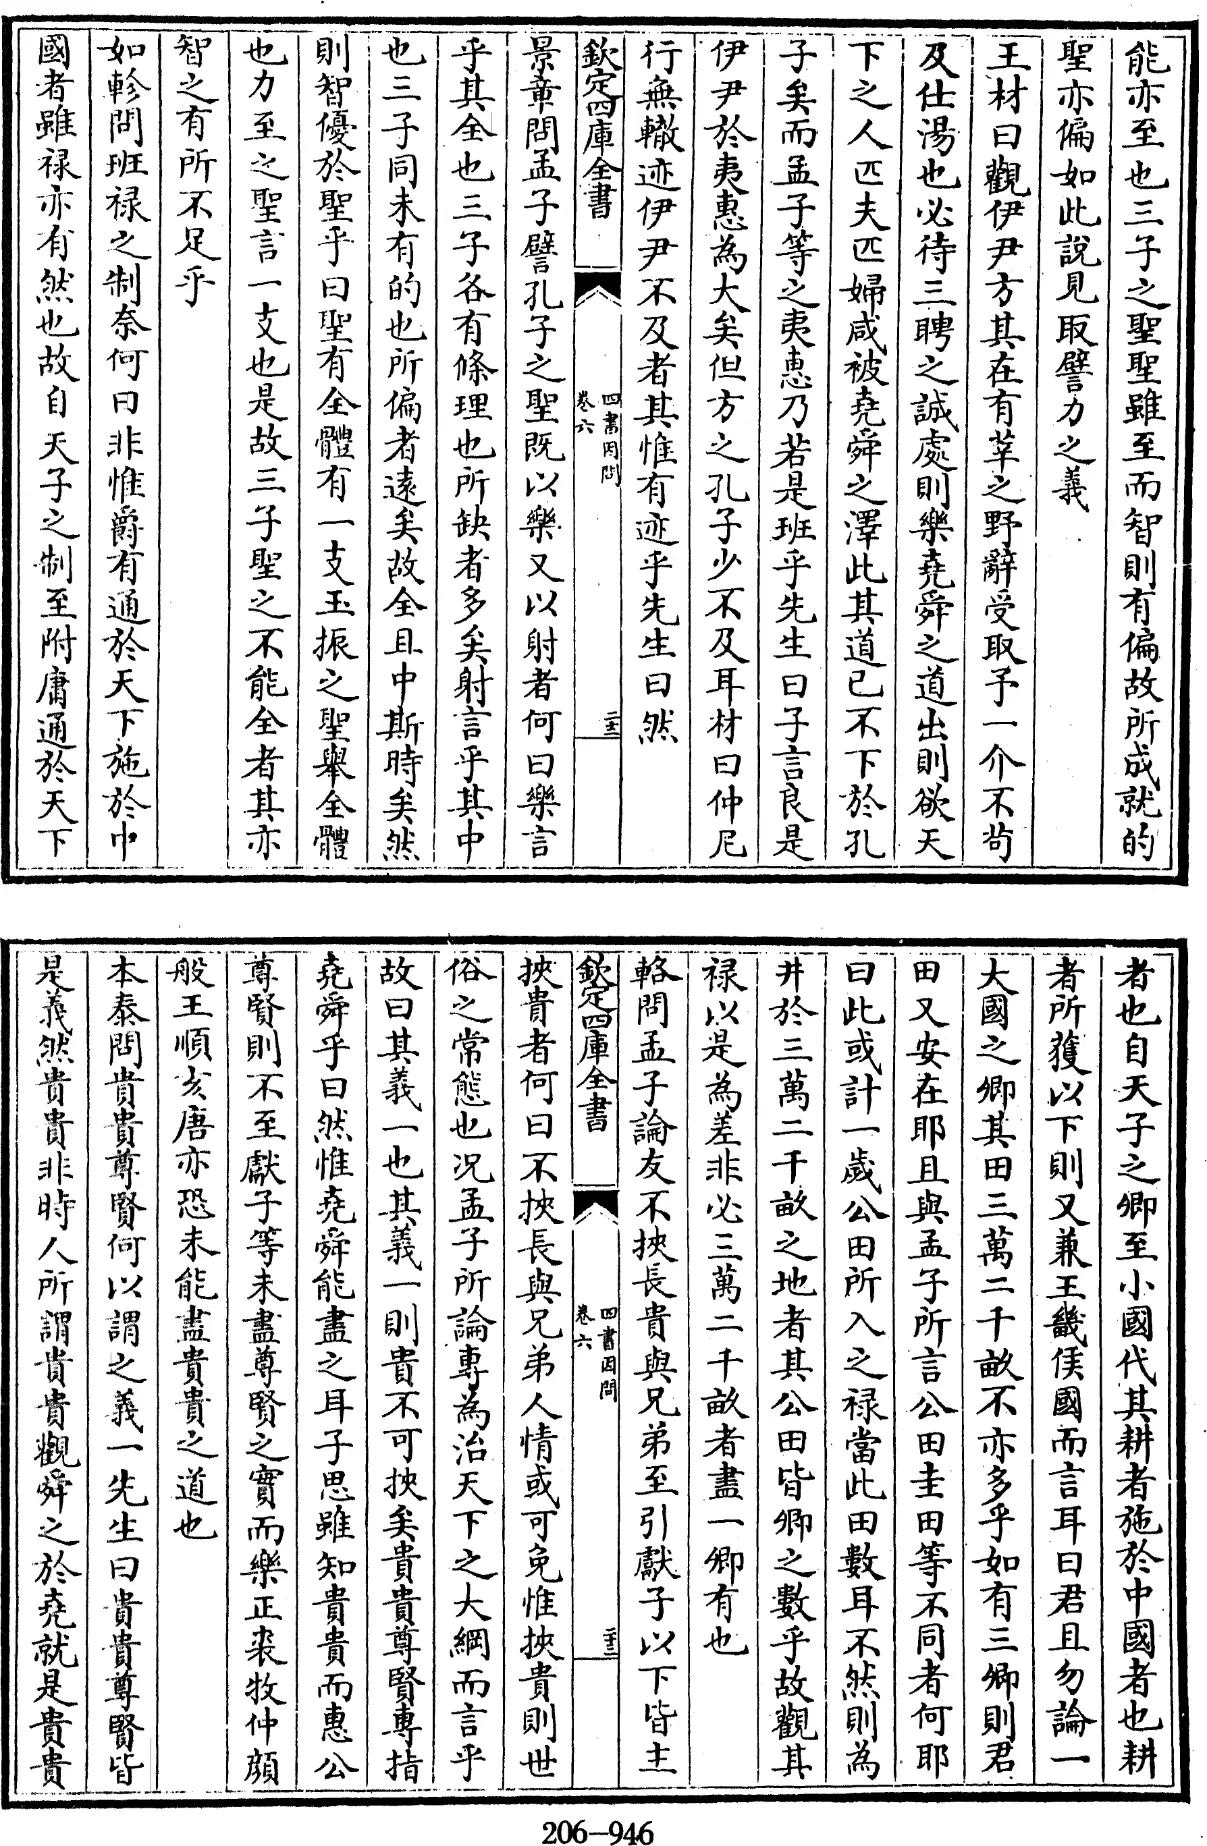 能亦至也三子之聖聖雖至而智則有偏故所成就的
聖亦偏如此說見取譬力之義
王材曰觀伊尹方其在有莘之野辭受取予一介不苟
及仕湯也必待三聘之誠處則樂堯舜之道出則欲天
下之人匹夫匹婦咸被堯舜之澤此其道已不下於孔
子矣而孟子等之夷惠乃若是班乎先生曰子言良是
伊尹於夷惠為大矣但方之孔子少不及耳材曰仲尼
行無轍迹伊尹不及者其惟有迹乎先生曰然
欽定四庫全書
四書因問
卷六
二十三
景章問孟子譬孔子之聖既以樂又以射者何曰樂言
乎其全也三子各有條理也所缺者多矣射言乎其中
也三子同未有的也所偏者遠矣故全且中斯時矣然
則智優於聖乎曰聖有全體有一支玉振之聖舉全體
也力至之聖言一支也是故三子聖之不能全者其亦
智之有所不足乎
如軫問班禄之制奈何曰非惟爵有通於天下施於中
國者雖禄亦有然也故自天子之制至附庸通於天下
者也自天子之卿至小國代其耕者施於中國者也耕
者所獲以下則又兼王畿侯國而言耳曰君且勿論一
大國之卿其田三萬二千畝不亦多乎如有三卿則君
田又安在耶且與孟子所言公田圭田等不同者何耶
曰此或計一歲公田所入之禄當此田數耳不然則為
井於三萬二千畝之地者其公田皆卿之數乎故觀其
禄以是為差非必三萬二千畝者盡一卿有也
輅問孟子論友不挾長貴與兄弟至引獻子以下皆主
欽定四庫全書
四書因問
卷六
二十三
挾貴者何曰不挾長與兄弟人情或可免惟挾貴則世
俗之常態也況孟子所論專為治天下之大綱而言乎
故曰其義一也其義一則貴不可挾矣貴貴尊賢專指
堯舜乎曰然惟堯舜能盡之耳子思雖知貴貴而惠公
尊賢則不至獻子等未盡尊賢之實而樂正裘牧仲顏
般王順亥唐亦恐未能盡貴貴之道也
本泰問貴貴尊賢何以謂之義一先生曰貴貴尊賢皆
是義然貴貴非時人所謂貴貴觀舜之於堯就是貴貴
206-946